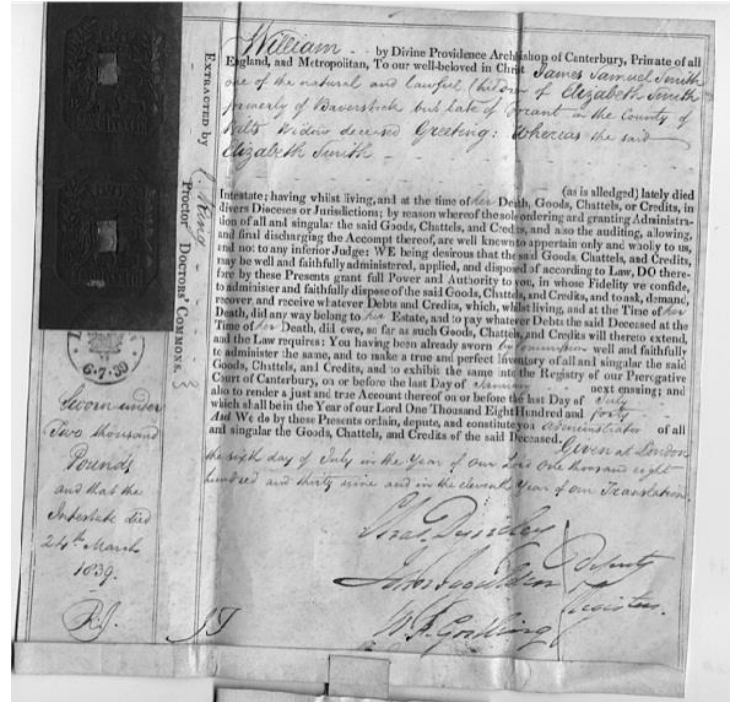 William - by Divine Providence Archbishop of Canterbury, Primate of all
England, and Metropolitan, To our well-beloved in Christ James Samuel Smith
one of the natural and lawful Children of Elizabeth Smith
formerly of Baverstock but late of Fovant in the County of
Wilts Widow deceased Greeting: Whereas the said
Elizabeth Smith
(as is alledged) lately died
Intestate; having whilst living, and at the time of her Death, Goods, Chattels, or Credits, in
divers Dioceses or Jurisdictions; by reason whereof the sole ordering and granting Administra-
tion of all and singular the said Goods, Chattels, and Credits, and also the auditing, allowing,
and final discharging the Accompt thereof, are well known to appertain only and wholly to us,
and not to any inferior Judge: WE being desirous that the said Goods, Chattels, and Credits,
may be well and faithfully administered, applied, and disposed of according to Law, DO there-
fore by these Presents grant full Power and Authority to you, in whose Fidelity we confide,
to administer and faithfully dispose of the said Goods, Chattels, and Credits, and to ask, demand,
recover, and receive whatever Debts and Credits, which, whilst living, and at the Time of her
Death, did any way belong to her Estate, and to pay whatever Debts the said Deceased at the
Time of her Death, did owe, so far as such Goods, Chattels, and Credits will thereto extend,
and the Law requires: You having been already sworn by Commission well and faithfully
to administer the same, and to make a true and perfect Inventory of all and singular the said
Goods, Chattels, and Credits, and to exhibit the same into the Registry of our Prerogative
Court of Canterbury, on or before the last Day of January next ensuing; and
also to render a just and true Account thereof on or before the last Day of July
which shall be in the Year of our Lord One Thousand Eight Hundred and forty
And We do by these Presents ordain, depute, and constitute you administrator of all
and singular the Goods, Chattels, and Credits of the said Deceased. Given at London
the sixth day of July in the Year of our Lord One thousand eight
hundred and thirty nine and in the eleventh Year of our Translation.
Deputy
Registers.
EXTRACTED by
Proctor DOCTORS' COMMONS.
6·7·39
Sworn under
Two thousand
Pounds
and that the
Intestate died
24th March
1839.